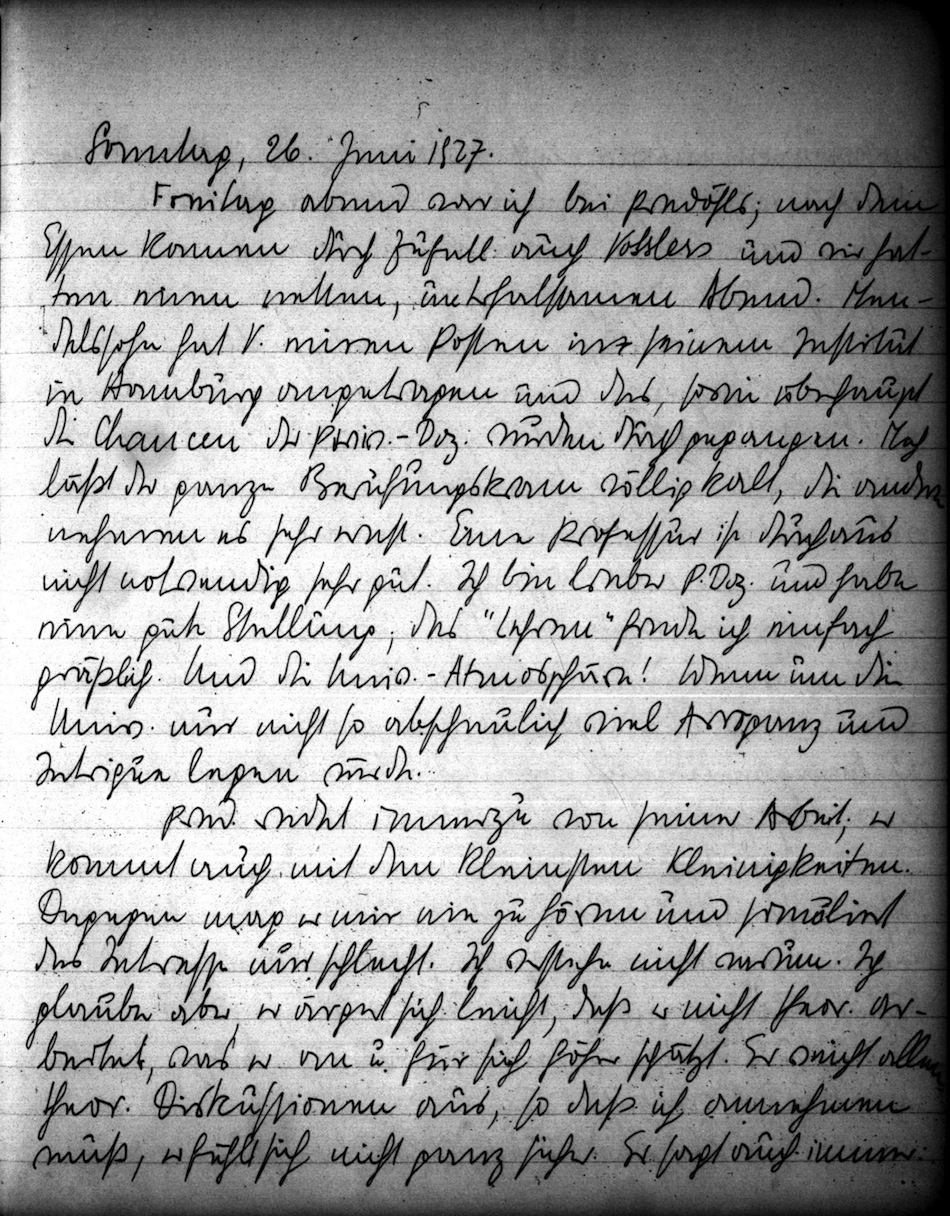 Sonntag, 26. Juni 1927.
Freitag abend war ich bei Predöhls; nach dem
Essen kamen durch Zufall auch Vosslers und wir hat-
ten einen netten, unterhaltsamen Abend. Men-
delssohn hat V. einen Posten in seinem Institut
in Hamburg angetragen und das, sowie überhaupt
die Chancen der Priv.-Doz. wurden durchgegangen. Mich
läßt der ganze Berufungskram völlig kalt, die andern
nehmen es sehr ernst. Eine Professur ist durchaus
nicht notwendig sehr gut. Ich bin lieber P.Doz. und habe
eine gute Stellung; das "Lehren" finde ich einfach
gräßlich. Und die Univ.-Atmosphäre! Wenn um die
Univ. nur nicht so abscheulich viel Arroganz und
Intrigue legen würde.
Pred. redet immerzu von seiner Arbeit; er
kommt auch mit den kleinsten Kleinigkeiten.
Dagegen mag er mir nie zu hören und simuliert
das Interesse nur schlecht. Ich verstehe nicht warum. Ich
glaube aber, er ärgert sich leicht, daß er nicht theor. ar-
beitet, was er an u. für sich höher schätzt. Er weicht allen
theor. Diskussionen aus, so daß ich annehmen
muß, er fühlt sich nicht ganz sicher. Er sagt auch immer: